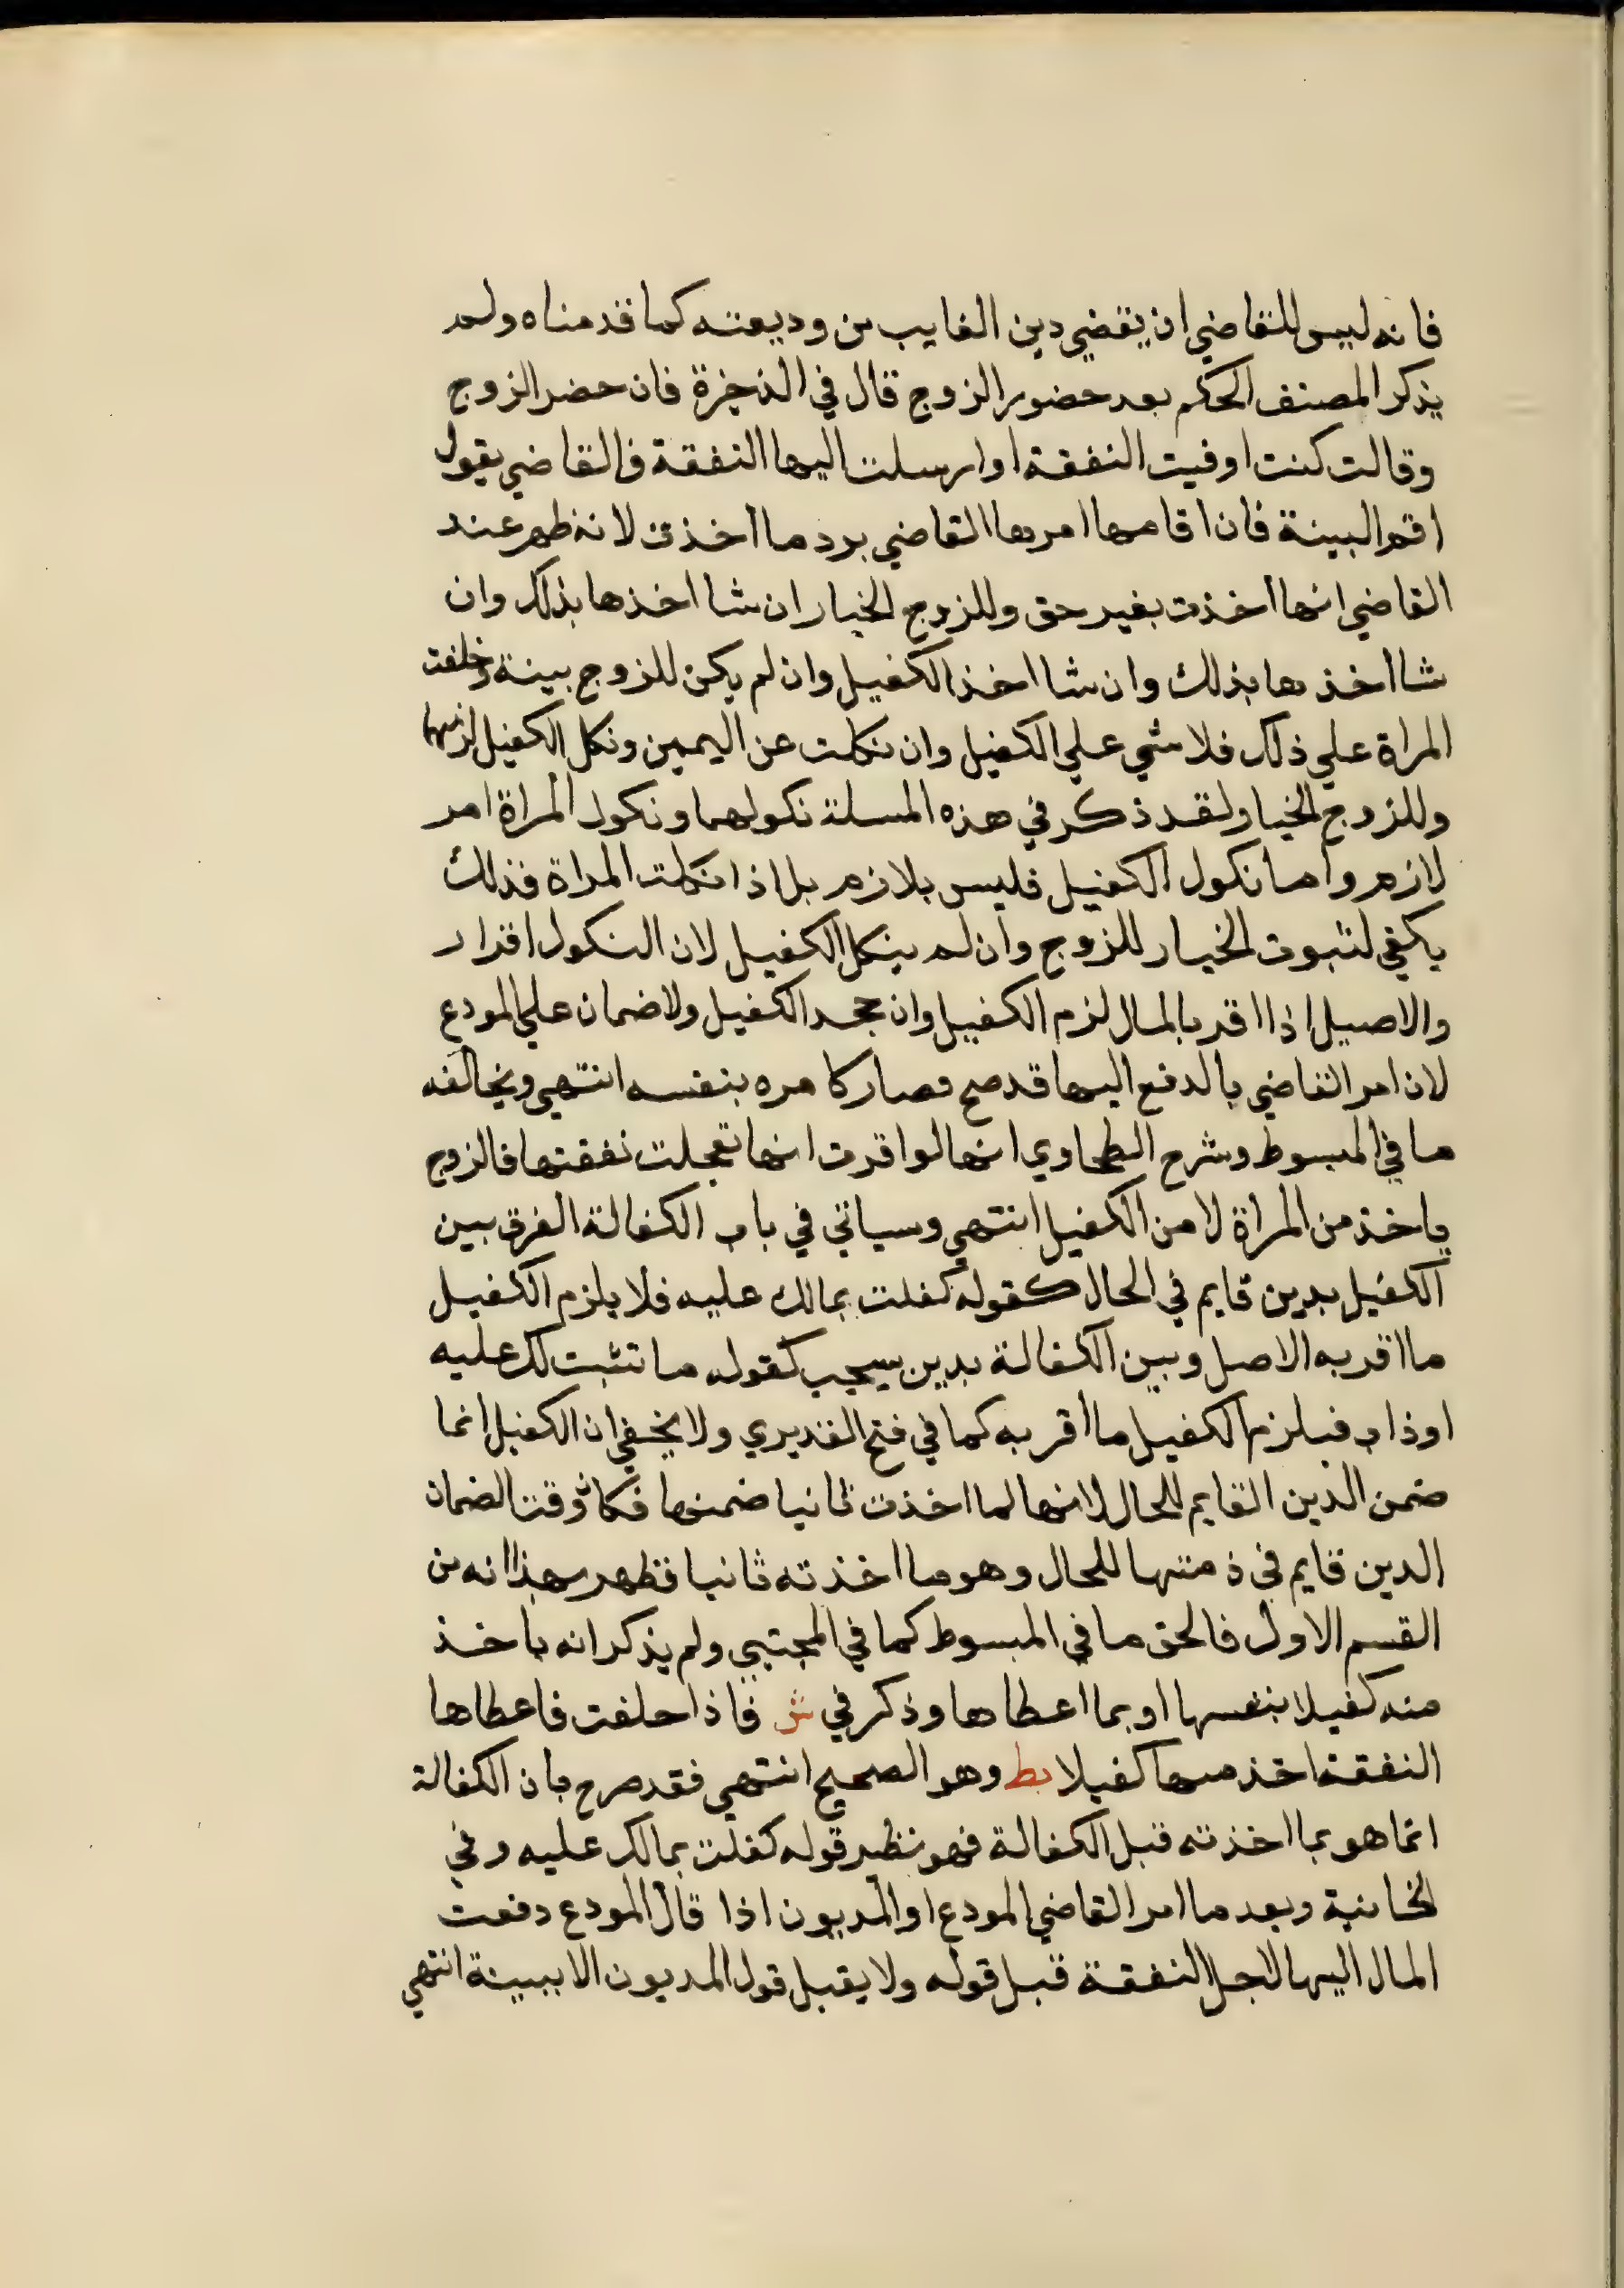 فانه ليس للقاضي ان يقضي دين الغايب من وديعته كما قدمناه ولم
يذكر المصنف الحكم بعد حضور الزوج قال في الذخيرة فان حضر الزوج
وقالت كنت اوفيت النفقة او ارسلت اليها النفقة فالقاضي يقول
اقم البينة فان اقامها امرها القاضي برد ما اخذت لانه ظهر عند
القاضي انها اخذت بغير حق وللزوج الخيار ان شا اخذها بذلك وان
شا اخذها بذلك وان شا اخذ الكفيل وان لم يكن للزوج بينة وحلفت
المراة علي ذلك فلا شي علي الكفيل وان نكلت عن اليمين ونكل الكفيل لزمهما
وللزوج الخيار ولقد ذكر في هذه المسلة نكولهما ونكول المراة امر
لازم واما نكول الكفيل فليس بلازم بل اذا نكلت المراة فذلك
يكفي لثبوت الخيار للزوج وان لم ينكل الكفيل لان النكول اقرار
والاصيل اذا اقر بالمال لزم الكفيل وان جحد الكفيل ولا ضمان علي المودع
لان امر القاضي بالدفع اليها قد صح فصار كامره بنفسه انتهي ويخالفه
ما في المبسوط وشرح الطحاوي انها لو اقرت انها تعجلت نفقتها فالزوج
ياخذ من المراة لا من الكفيل انتهي وسياتي في باب الكفالة الفرق بين
الكفيل بدين قايم في الحال كقوله كفلت بمالك عليه فلا يلزم الكفيل
ما اقر به الاصل وبين الكفالة بدين يجب كقوله ما تثبت لك عليه
او ذاب فيلزم الكفيل ما اقر به كما في فتح القديري ولا يخفي ان الكفيل انما
ضمن الدين القايم للحال لانها لما اخذت ثانيا ضمنها فكان وقت الضمان
الدين قايم في ذمتها للحال وهو ما اخذته ثانيا فظهر بهذا انه من
القسم الاول فالحق ما في المبسوط كما في المجتبي ولم يذكر انه ياخذ
منه كفيلا بنفسها او بما اعطاها وذكر في ش فاذا حلفت فاعطاها
النفقة اخذ منها كفيلا بط وهو الصحيح انتهي فقد صرح بان الكفالة
انما هو بما اخذته قبل الكفالة فهو نظير قوله كفلت بمالك عليه وفي
الخانية وبعد ما امر القاضي المودع او المديون اذا قال المودع دفعت
المال اليها لاجل النفقة قبل قوله ولا يقبل قول المديون الا ببينة انتهي